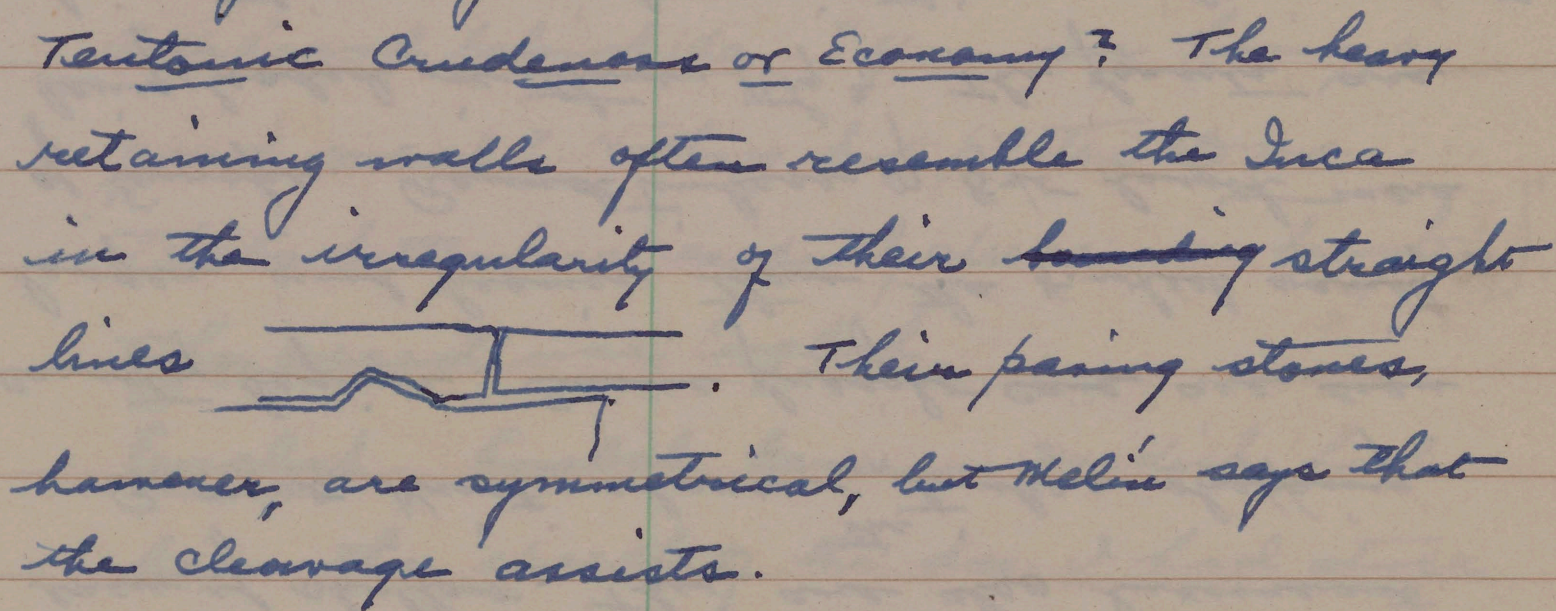 Teutonic Crudeness or Economy? The heavy
retaining walls often resemble the Inca
in the irregularity of their bounding straight
lines . Their paving stones,
however, are symmetrical, but Melín says that
the cleavage assists.